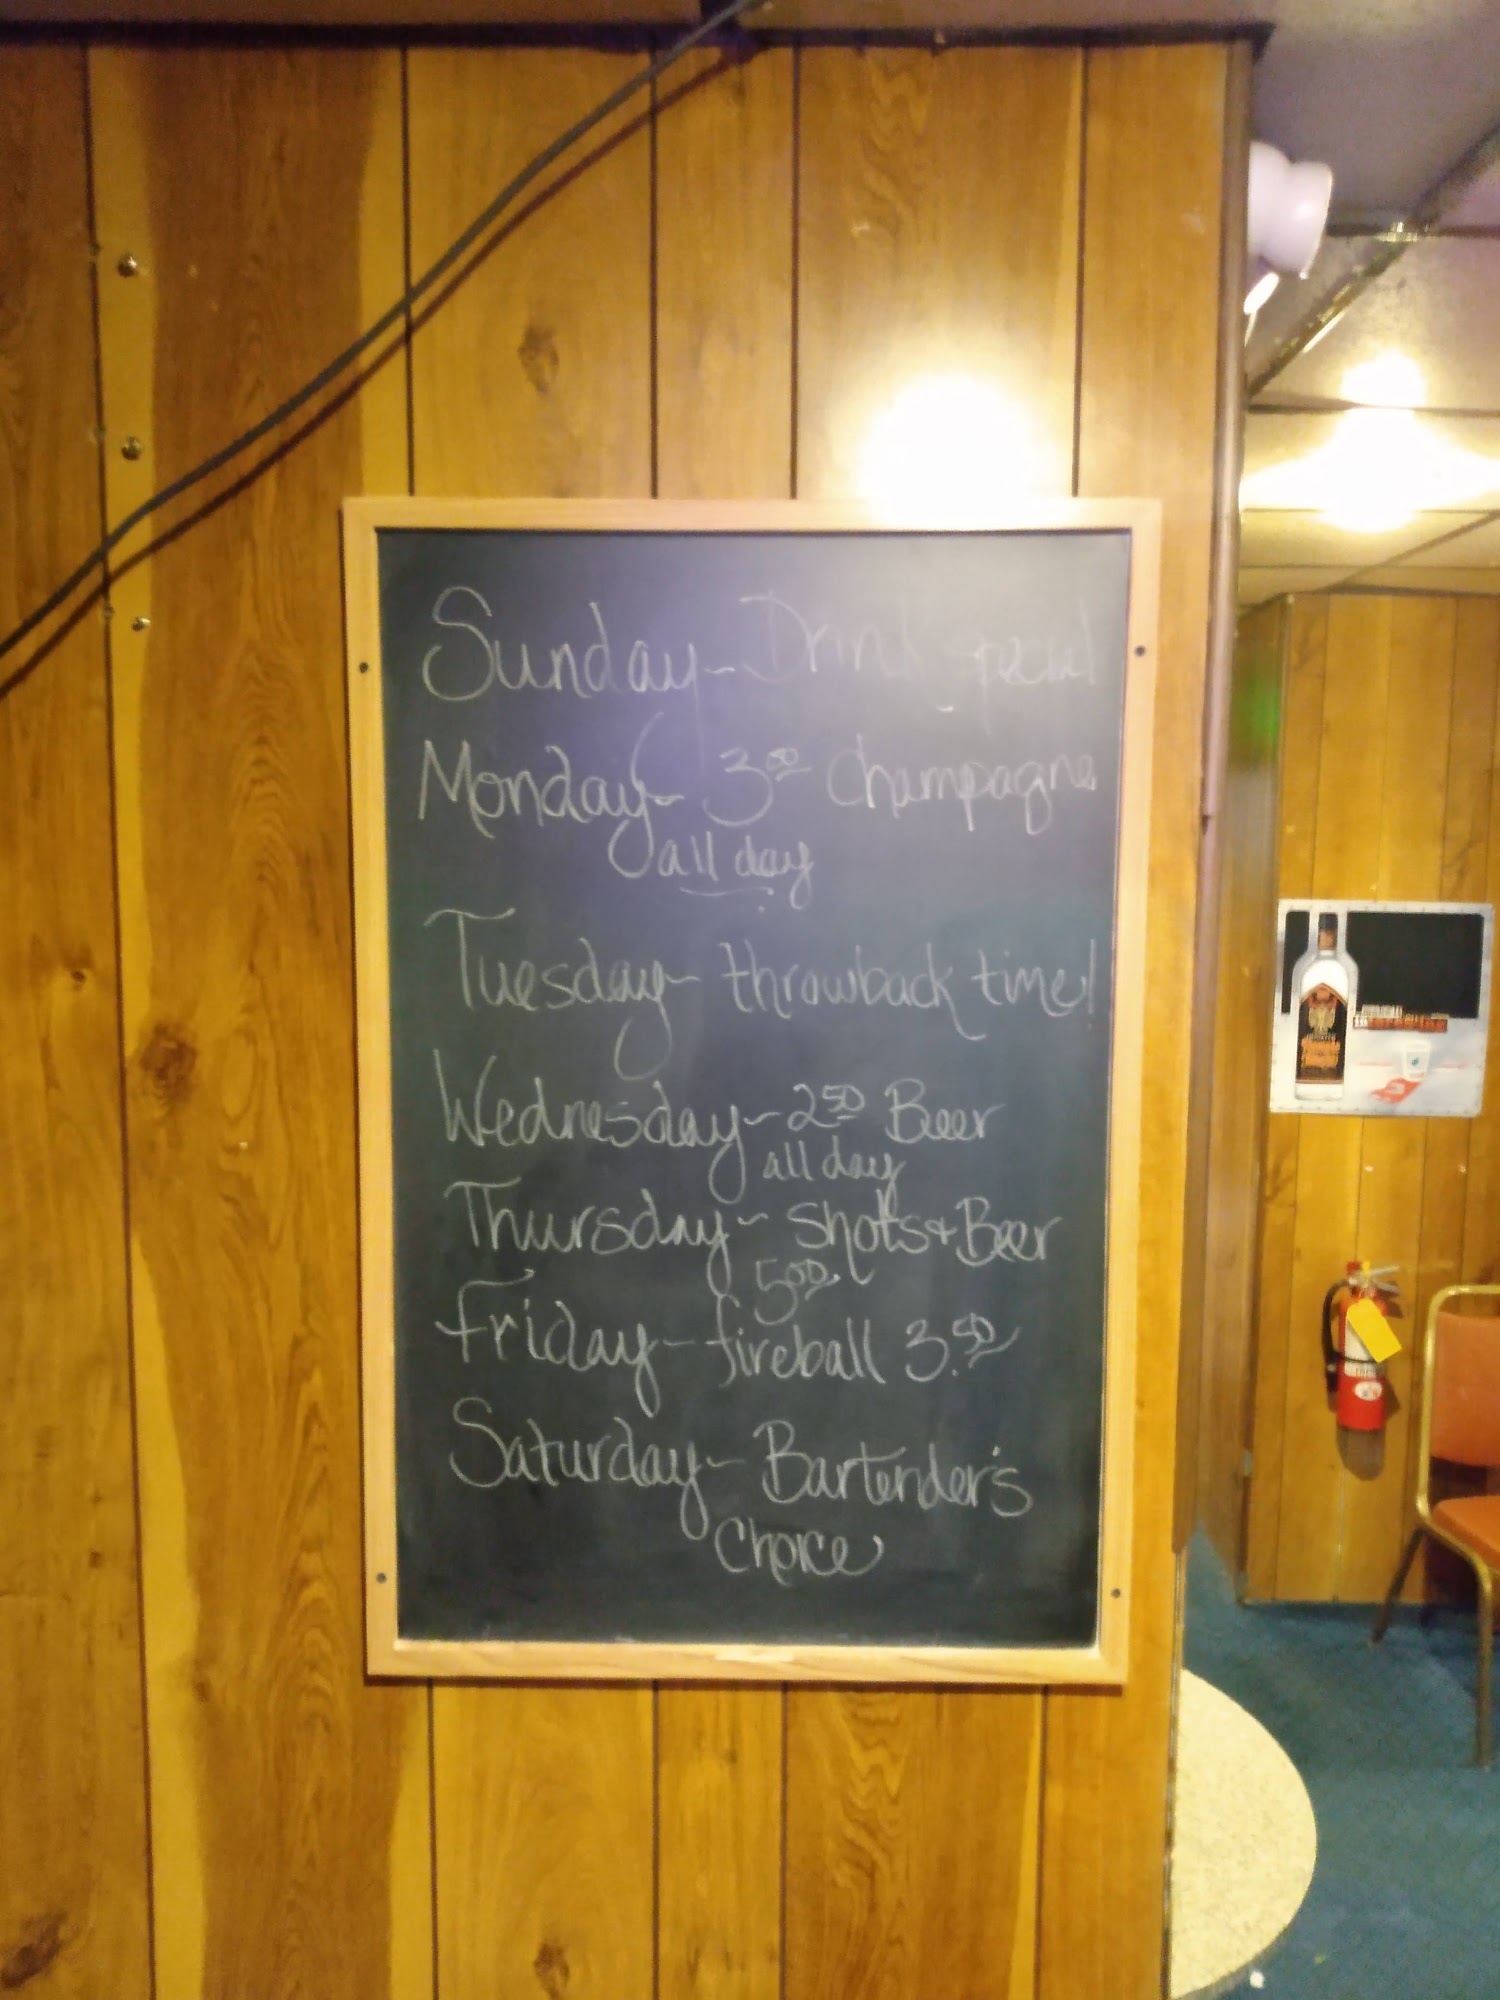 Sunday ~ Drink Special
Monday ~ 3.50 Champagne
all day
Tuesday ~ throwback time!
Wednesday ~ 2.50 Beer
all day
Thursday ~ Shots + Beer
5.00
Friday - fireball 3.50
Saturday ~ Bartender's
Choice